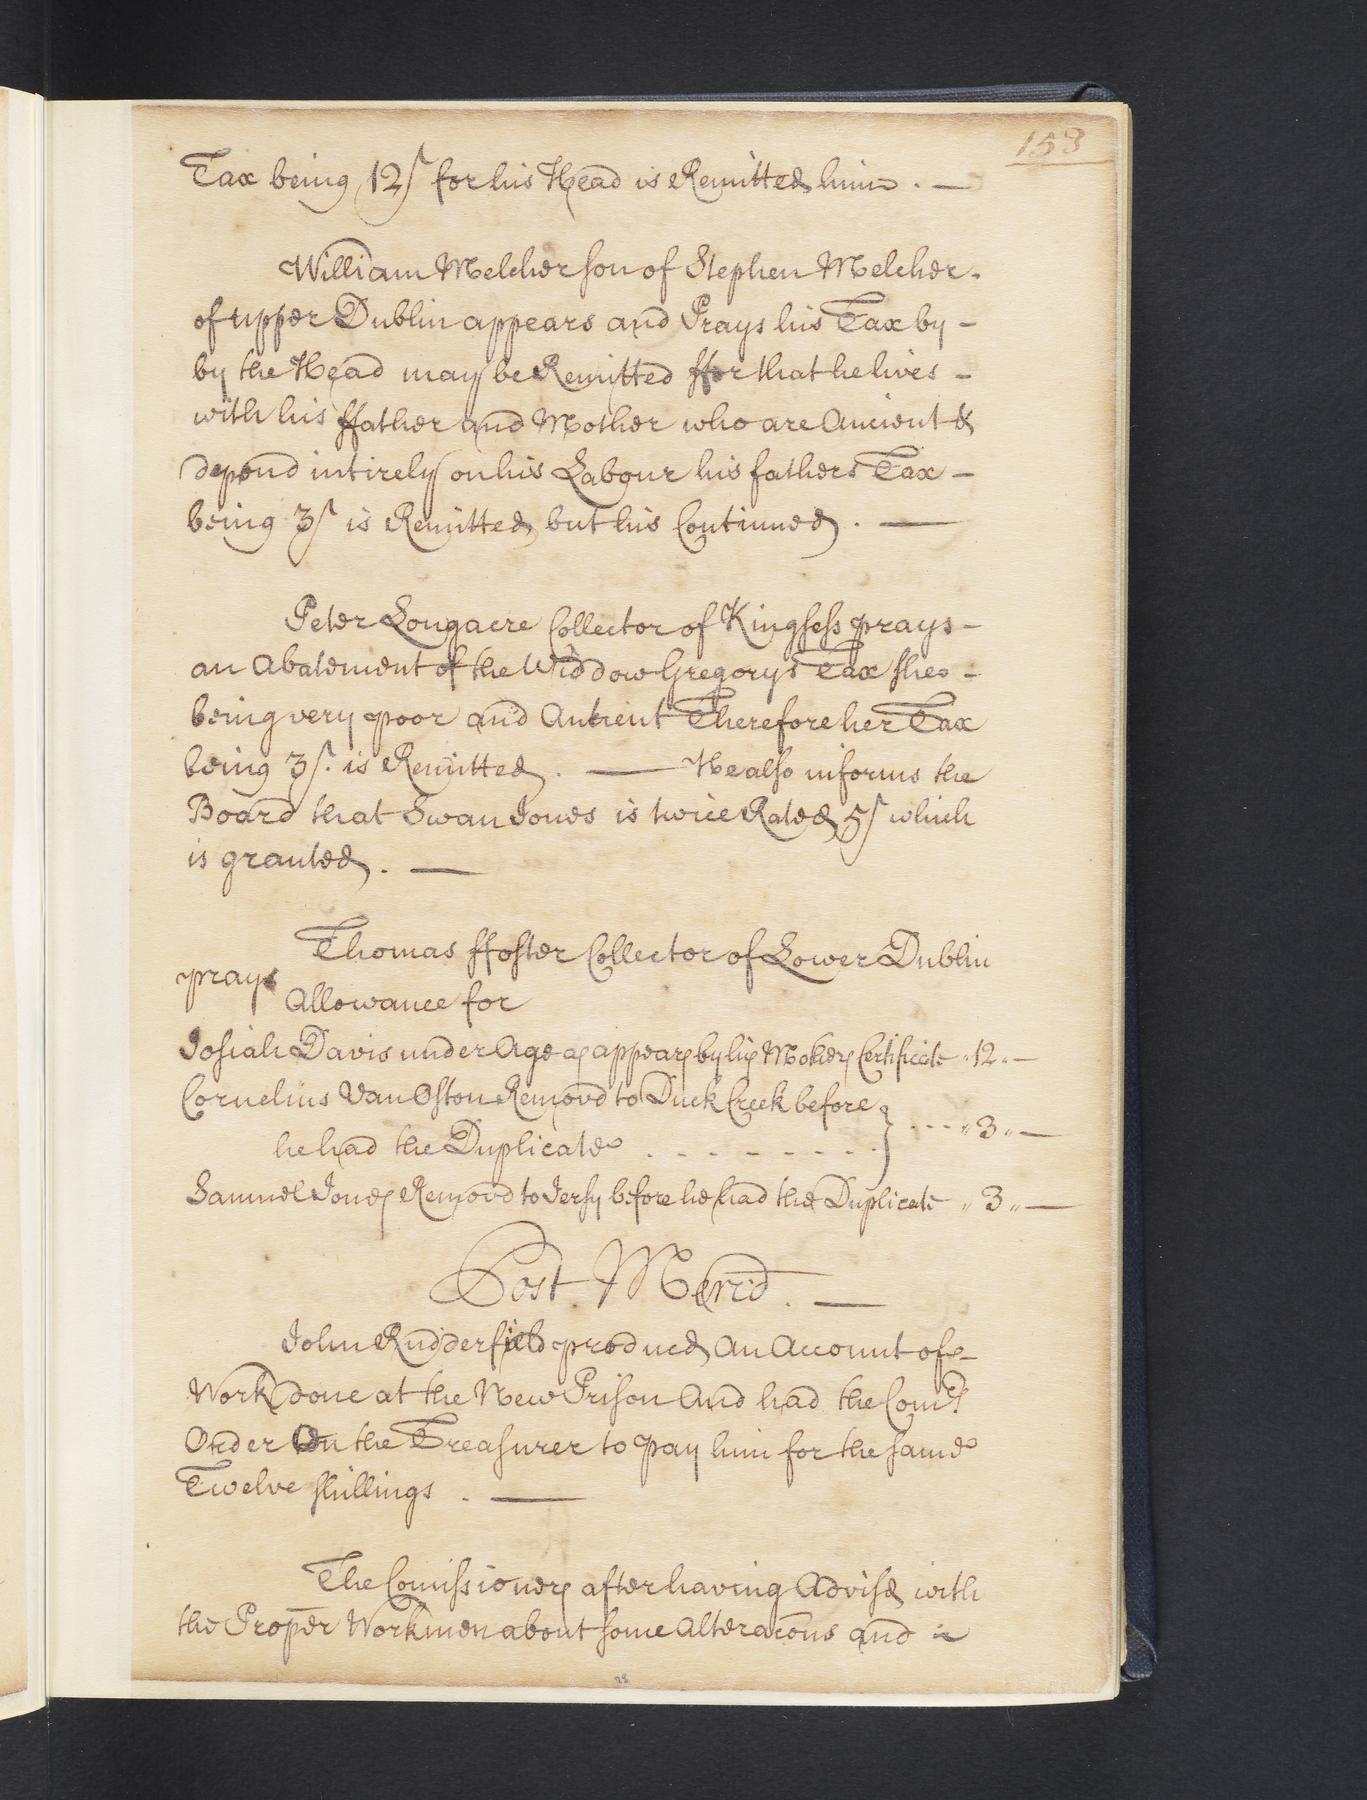 153
Tax being 12/ for his Head is Remitted him . —
William Melcher son of Stephen Melcher -
of upper Dublin appears and Prays his Tax by -
by the Head may be Remitted ffor that he lives -
with his ffather and Mother who are Ancient &
depend intirely on his Labour his fathers Tax -
being 3/ is Remitted but his Continued . —
Peter Longacre Collector of Kingsess prays -
an Abatement of the Widdow Gregorys Tax shee -
being very poor and Antient Therefore her Tax
being 3/. is Remitted . — He also informs the
Board that Swan Jones is twice Rated 5/ which
is granted . —
Thomas ffoster Collector of Lower Dublin
prays
Allowance for
Josiah Davis under Age as appears by his Mothers Certificate „ 12 „ —
Cornelius Van Oston Removd to Duck Creek before
he had the Duplicate - - - - - - - - - } - - - „ 3 „ —
Samuel Jones Removd to Jersy before he had the Duplicate „ 3 „ —
Post Merid . —
John Rudderfield produced An Account of -
Work done at the New Prison And had the Comrs
Order On the Treasurer to pay him for the same
Twelve shillings . —
The Comissioners after having Advised with
the Proper Workmen about some Alteracons and a
28